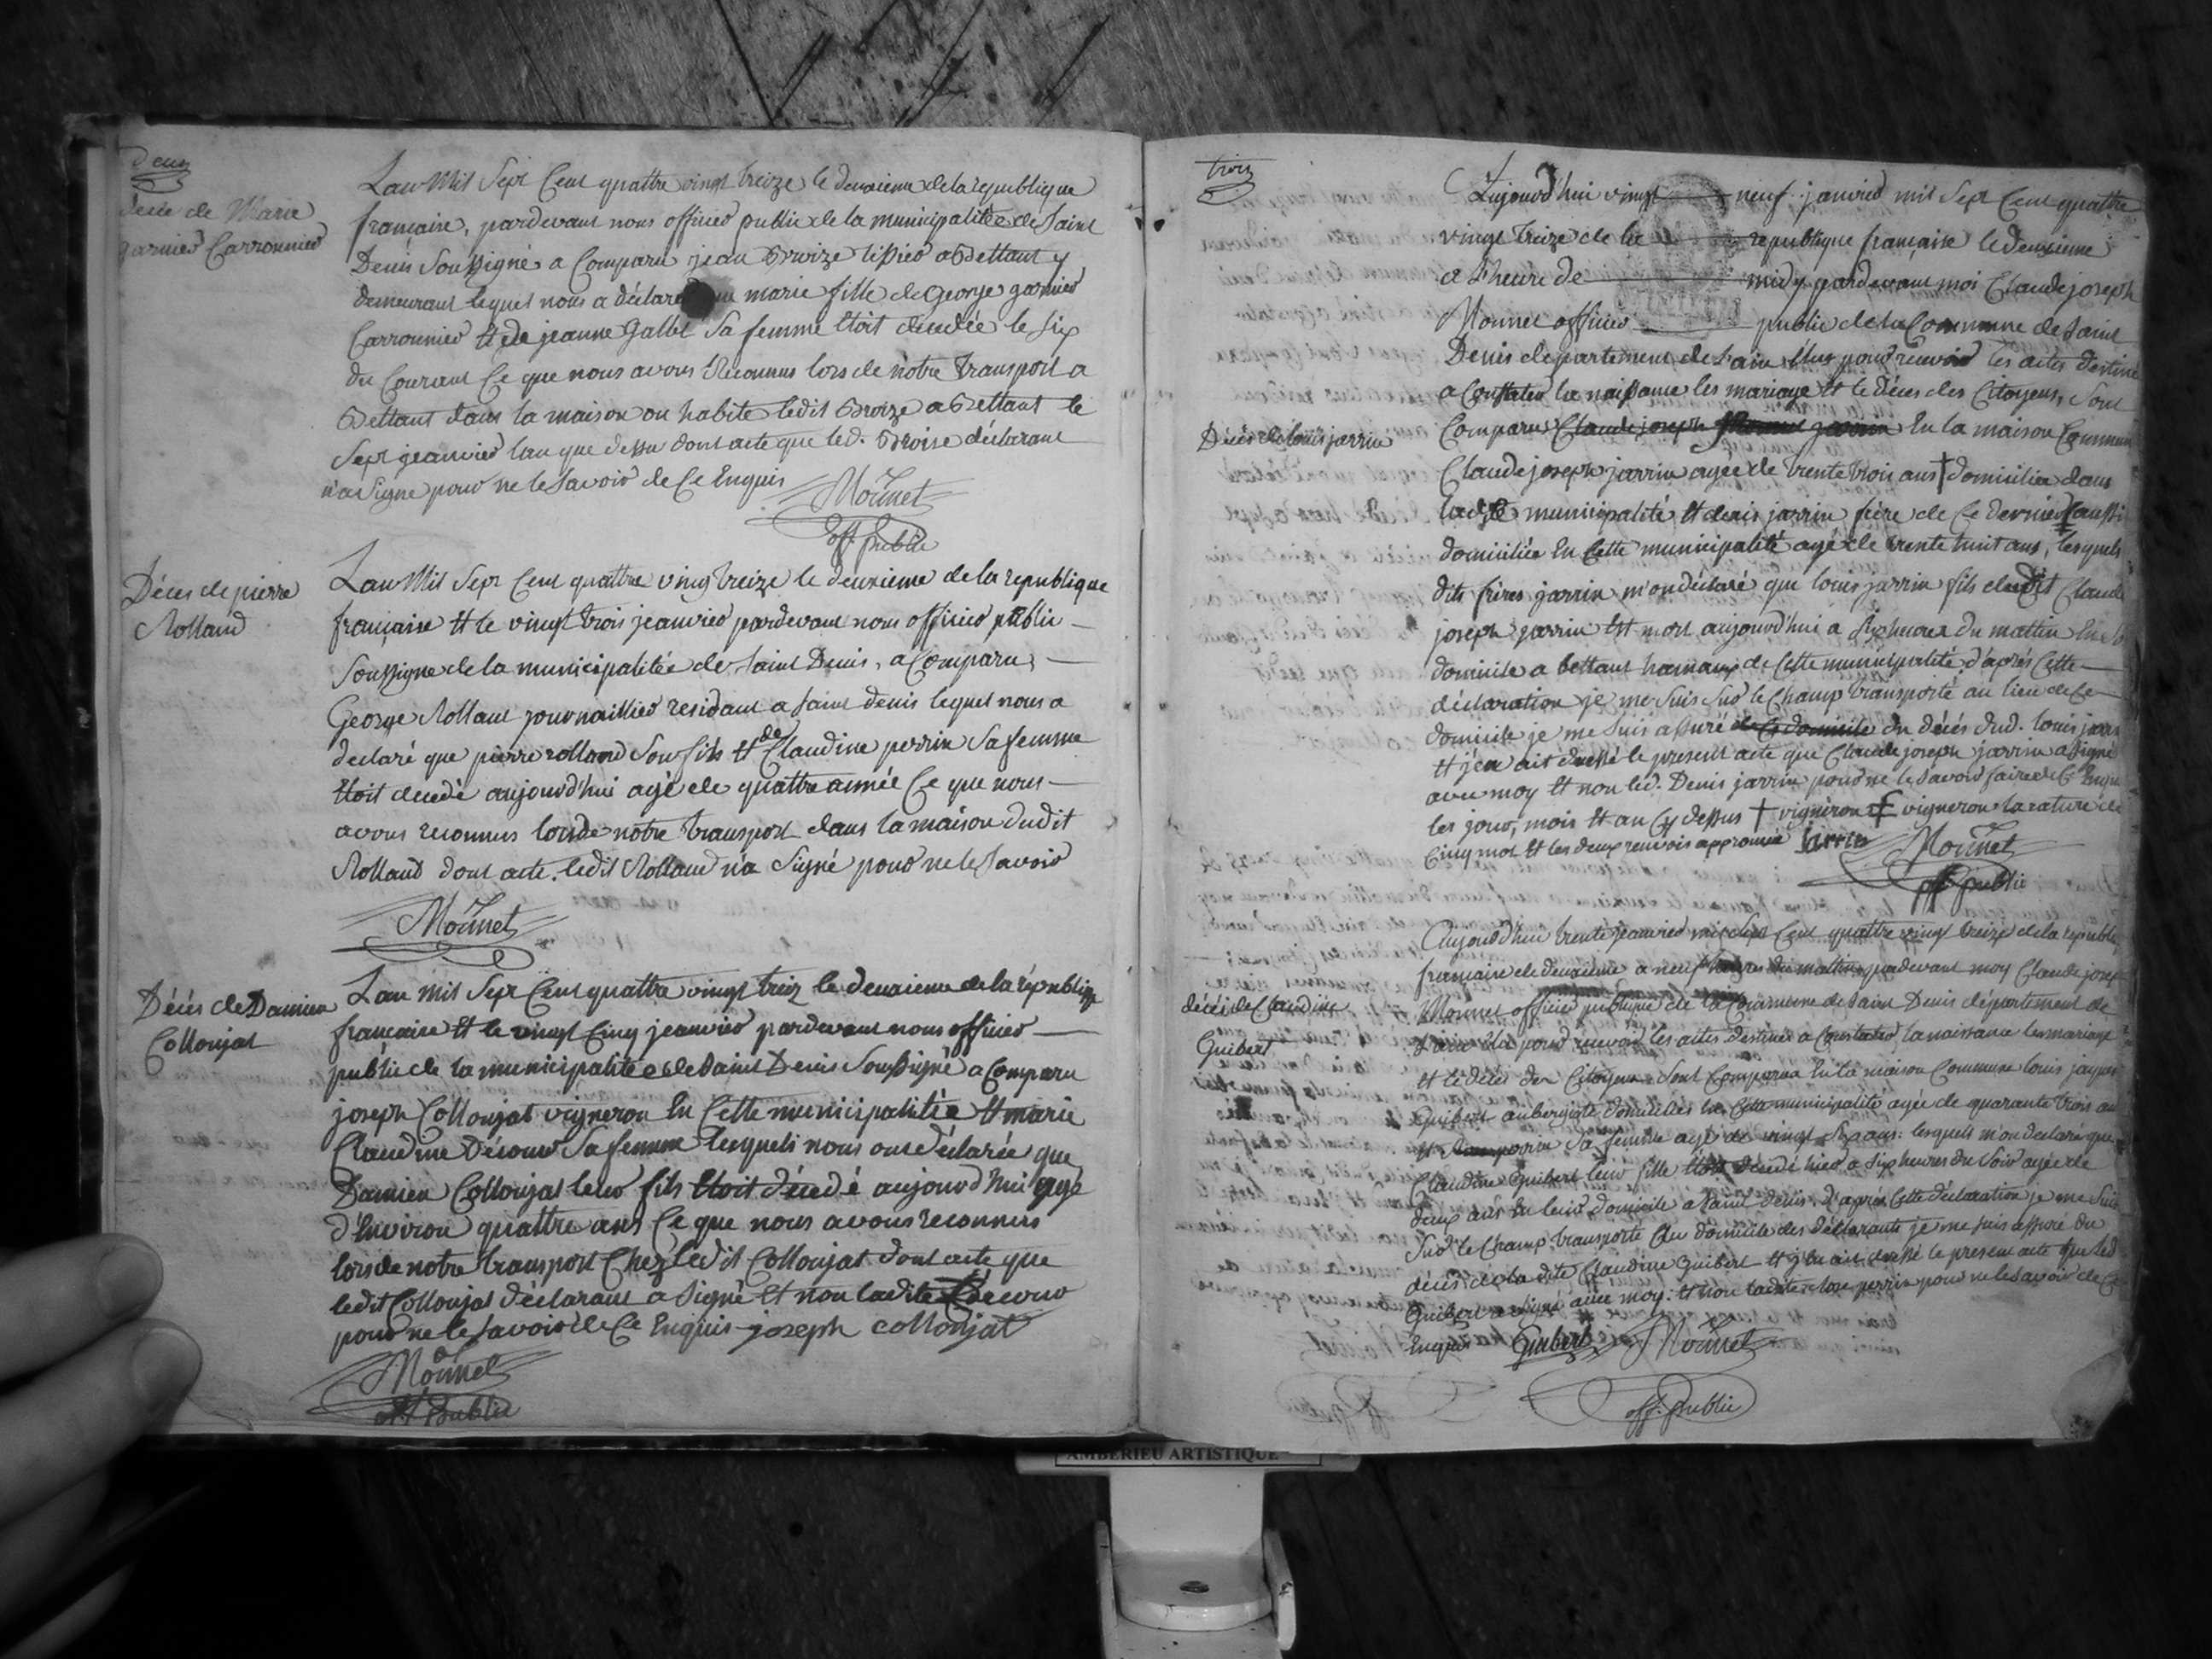 deux
decè de Marie
garnier Carronnier
Lan Mil Sept Cent quattre vingt treize le deuxieme de la republique
française, pardevant nous officier public de la municipalitée de Saint
Denis Soussigné a Comparu jean Broize tissier a Bettant y
demeurant lequel nous a déclaré que marie fille de George garnier
Carronnier et de jeanne Gallet Sa femme Etoit decedée le six
du Courant Ce que nous avons Reconnus lors de nôtre transport a
Bettant dans la maison ou habite ledit Broize a Bettant le
Sept jeanvier lan que dessu dont acte que led. Broise déclarant
n'a Signé pour ne le Savoir de Ce Enquis
Moünet
off. public
Déces de pierre
Rolland
Lan Mil Sept Cent quattre vingt treize le deuxieme de la republique
française Et le vingt trois jeanvier pardevant nous officier public
Soussigné de la municipalitée de Saint Denis, a Comparu,
George Rolland journaillier residant a Saint denis lequel nous a
declaré que pierre rolland Son fils Et de Claudine perrin Sa femme
Etoit decedé aujourd'hui agé de quattre année Ce que nous
avons reconnus lorsde notre transport dans la maison dudit
Rolland dont acte. ledit Rolland n'a Signé pour ne le Savoir
Moünet
Décés de Damien
Collonjat
Lan mil Sept Cent quattre vingt treiz le deuxieme de la république
francaise Et le vingt Cinq jeanvier pardevant nous officier
public de la municipalitée de Saint Denis Soussigné a Comparu
joseph Collonjat vigneron En Cette municipalitée Et marie
Claudine Sa femme lesquels nous ont déclarée que
Damien Collonjat leur fils Etoit décedé aujourd'hui agé
d'Environ quattre ans Ce que nous avons reconnus
lorsde notre transport Chez ledit Collonjat dont acte que
ledit Collonjat déclarant a Signé Et non ladite
pour ne le Savoir de Ce Enquis joseph collonjat
Moünet
off. Public
trois
Aujourd'hui vingt neuf janvier mil Sept Cent quattre
vingt treize de la republique française le deuxieme
a l'heure de midy pardevant moi Claude joseph
Mounet officier public de la Commune de Saint
Denis departement de l'ain Elus pour recevoir les actes destiné
a Constater la naissance les mariage Et le déces des Citoyens, Sont
Décès de louis jarrin
Comparu Claude joseph En la maison Commun
Claude joseph jarrin agée de trente trois ans † domiciliée dans
ladite municipalité Et denis jarrin frère de Ce dernier ‡ aussi
domiciliée En Cette municipalité agé de trente huit ans, lesquels
dits frères jarrin m'on déclaré que louis jarrin fils dudit Claude
joseph jarrin Est mort aujourd'hui a six heures du mattin En So
domicile a bettant hamaux de Cette municipalité, d'après Cette
déclaration je me Suis Sur le Champ transporté au lieu de Ce
domicile je me Suis assuré de Ce domicile du décés dud. louis jarri
Et j'en ait dressé le present acte que Claude joseph jarrin a signé
avec moy Et non led. Denis jarrin pour ne le Savoir faire de Ce Enqui
les jour, mois Et an Cy dessus † vigneron ‡ vigneron la rature de
Cinq mot Et les deux renvois approuvée jarrin
Moünet
off public
Aujourd'hui trente jeanvier mil Sept Cent quattre vingt treize de la republi
française le deuxième a neuf heures du mattin pardevant moy Claude josep
décès de Claudine
Guibert
Mounet officier publique de la Commune de Saint Denis département de
l'ain Elu pour recevoir les actes destinés a Constater la naissance les mariage
et le déces des Citoyens. Sont Comparus En la maison Commune louis jaques
Guibert aubergiste domiciliés En Cette municipalité agée de quarante trois an
Et perrin Sa femme agé de vingt Six ans: lesquels m'on declaré que
Claudine Guibert leur fille Etoit decedé hier a Six heures du Soir agée de
deux ans En leur domicile a Saint denis. d'après Cette déclaration je me Suis
Sur le Champ transporté au domicile des déclarants je me suis assuré du
décès de la dite Claudine Guibert Et j'en ait dressé le present acte que led
Guibert a signé avec moy: Et non ladite perrin pour ne le Savoir de Ce
Enquis Guibert
Moünet
off. public
AMBERIEU ARTISTIQUE